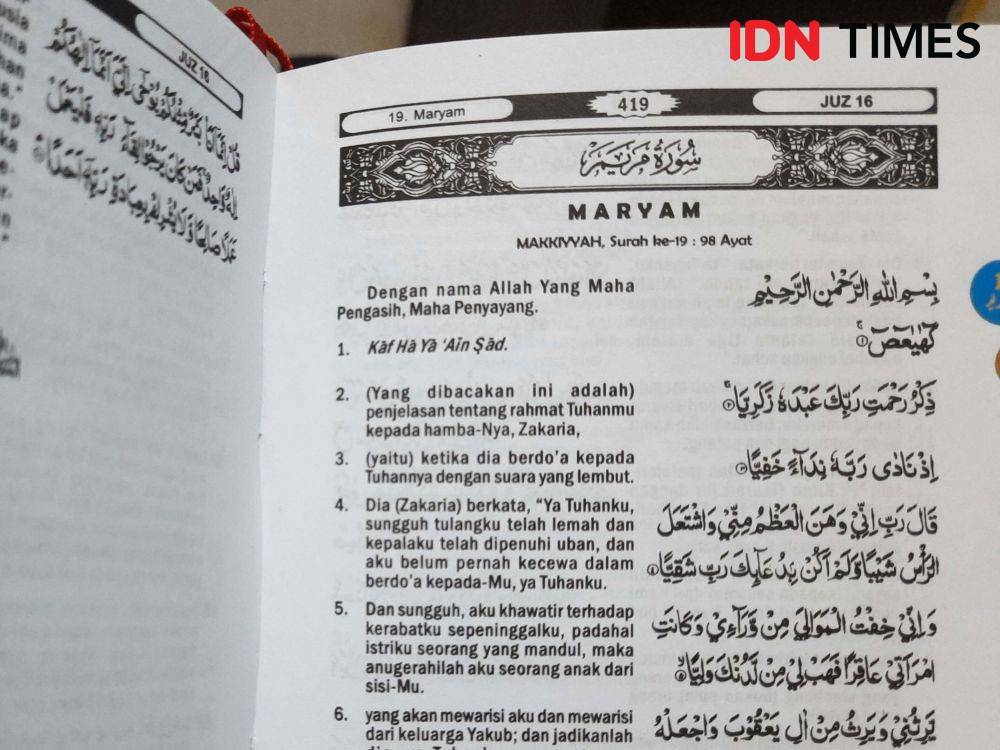 IDN TIMES
JUZ 16
19. Maryam
419
JUZ 16
سُورَةُ مَرْيَمَ
MARYAM
MAKKIYYAH, Surah ke-19 : 98 Ayat
Dengan nama Allah Yang Maha
Pengasih, Maha Penyayang.
بِسْمِ اللّٰهِ الرَّحْمٰنِ الرَّحِيْمِ
1. Kāf Hā Yā ‘Aīn Ṣād.
كۤهٰيٰعۤصۤ ۚ ١
2. (Yang dibacakan ini adalah)
penjelasan tentang rahmat Tuhanmu
kepada hamba-Nya, Zakaria,
ذِكْرُ رَحْمَتِ رَبِّكَ عَبْدَهٗ زَكَرِيَّا ۚ ٢
3. (yaitu) ketika dia berdo'a kepada
Tuhannya dengan suara yang lembut.
اِذْ نَادٰى رَبَّهٗ نِدَاۤءً خَفِيًّا ٣
4. Dia (Zakaria) berkata, “Ya Tuhanku,
sungguh tulangku telah lemah dan
kepalaku telah dipenuhi uban, dan
aku belum pernah kecewa dalam
berdo'a kepada-Mu, ya Tuhanku.
قَالَ رَبِّ اِنِّيْ وَهَنَ الْعَظْمُ مِنِّيْ وَاشْتَعَلَ
الرَّأْسُ شَيْبًا وَّلَمْ اَكُنْ بِدُعَاۤىِٕكَ رَبِّ شَقِيًّا ٤
5. Dan sungguh, aku khawatir terhadap
kerabatku sepeninggalku, padahal
istriku seorang yang mandul, maka
anugerahilah aku seorang anak dari
sisi-Mu.
وَاِنِّيْ خِفْتُ الْمَوَالِيَ مِنْ وَّرَاۤءِيْ وَكَانَتِ
امْرَاَتِيْ عَاقِرًا فَهَبْ لِيْ مِنْ لَّدُنْكَ وَلِيًّا ۙ ٥
6. yang akan mewarisi aku dan mewarisi
dari keluarga Yakub; dan jadikanlah
يَّرِثُنِيْ وَيَرِثُ مِنْ اٰلِ يَعْقُوْبَ وَاجْعَلْهُ